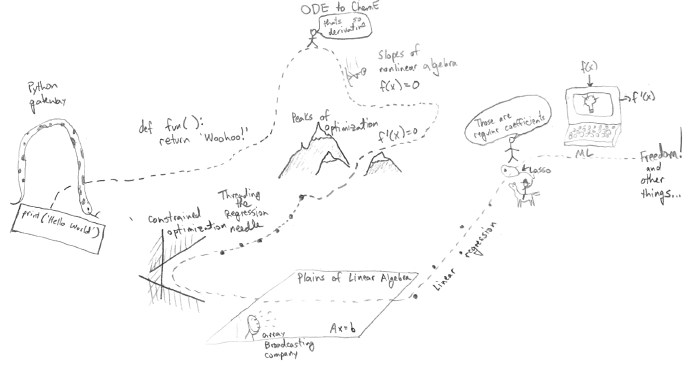 ODE to ChemE
thats so
derivative
Slopes of
nonlinear algebra
f(x)=0
Python
gateway
def fun():
return 'Woohoo!'
print('Hello World')
Peaks of
optimization
f'(x)=0
Threading
the
Regression
needle
constrained
optimization
Plains of Linear Algebra
Ax=b
array
Broadcasting
company
Linear regression
Those are
regular coefficients
LASSO
f(x)
f'(x)
ML
Freedom!
and
other
things...